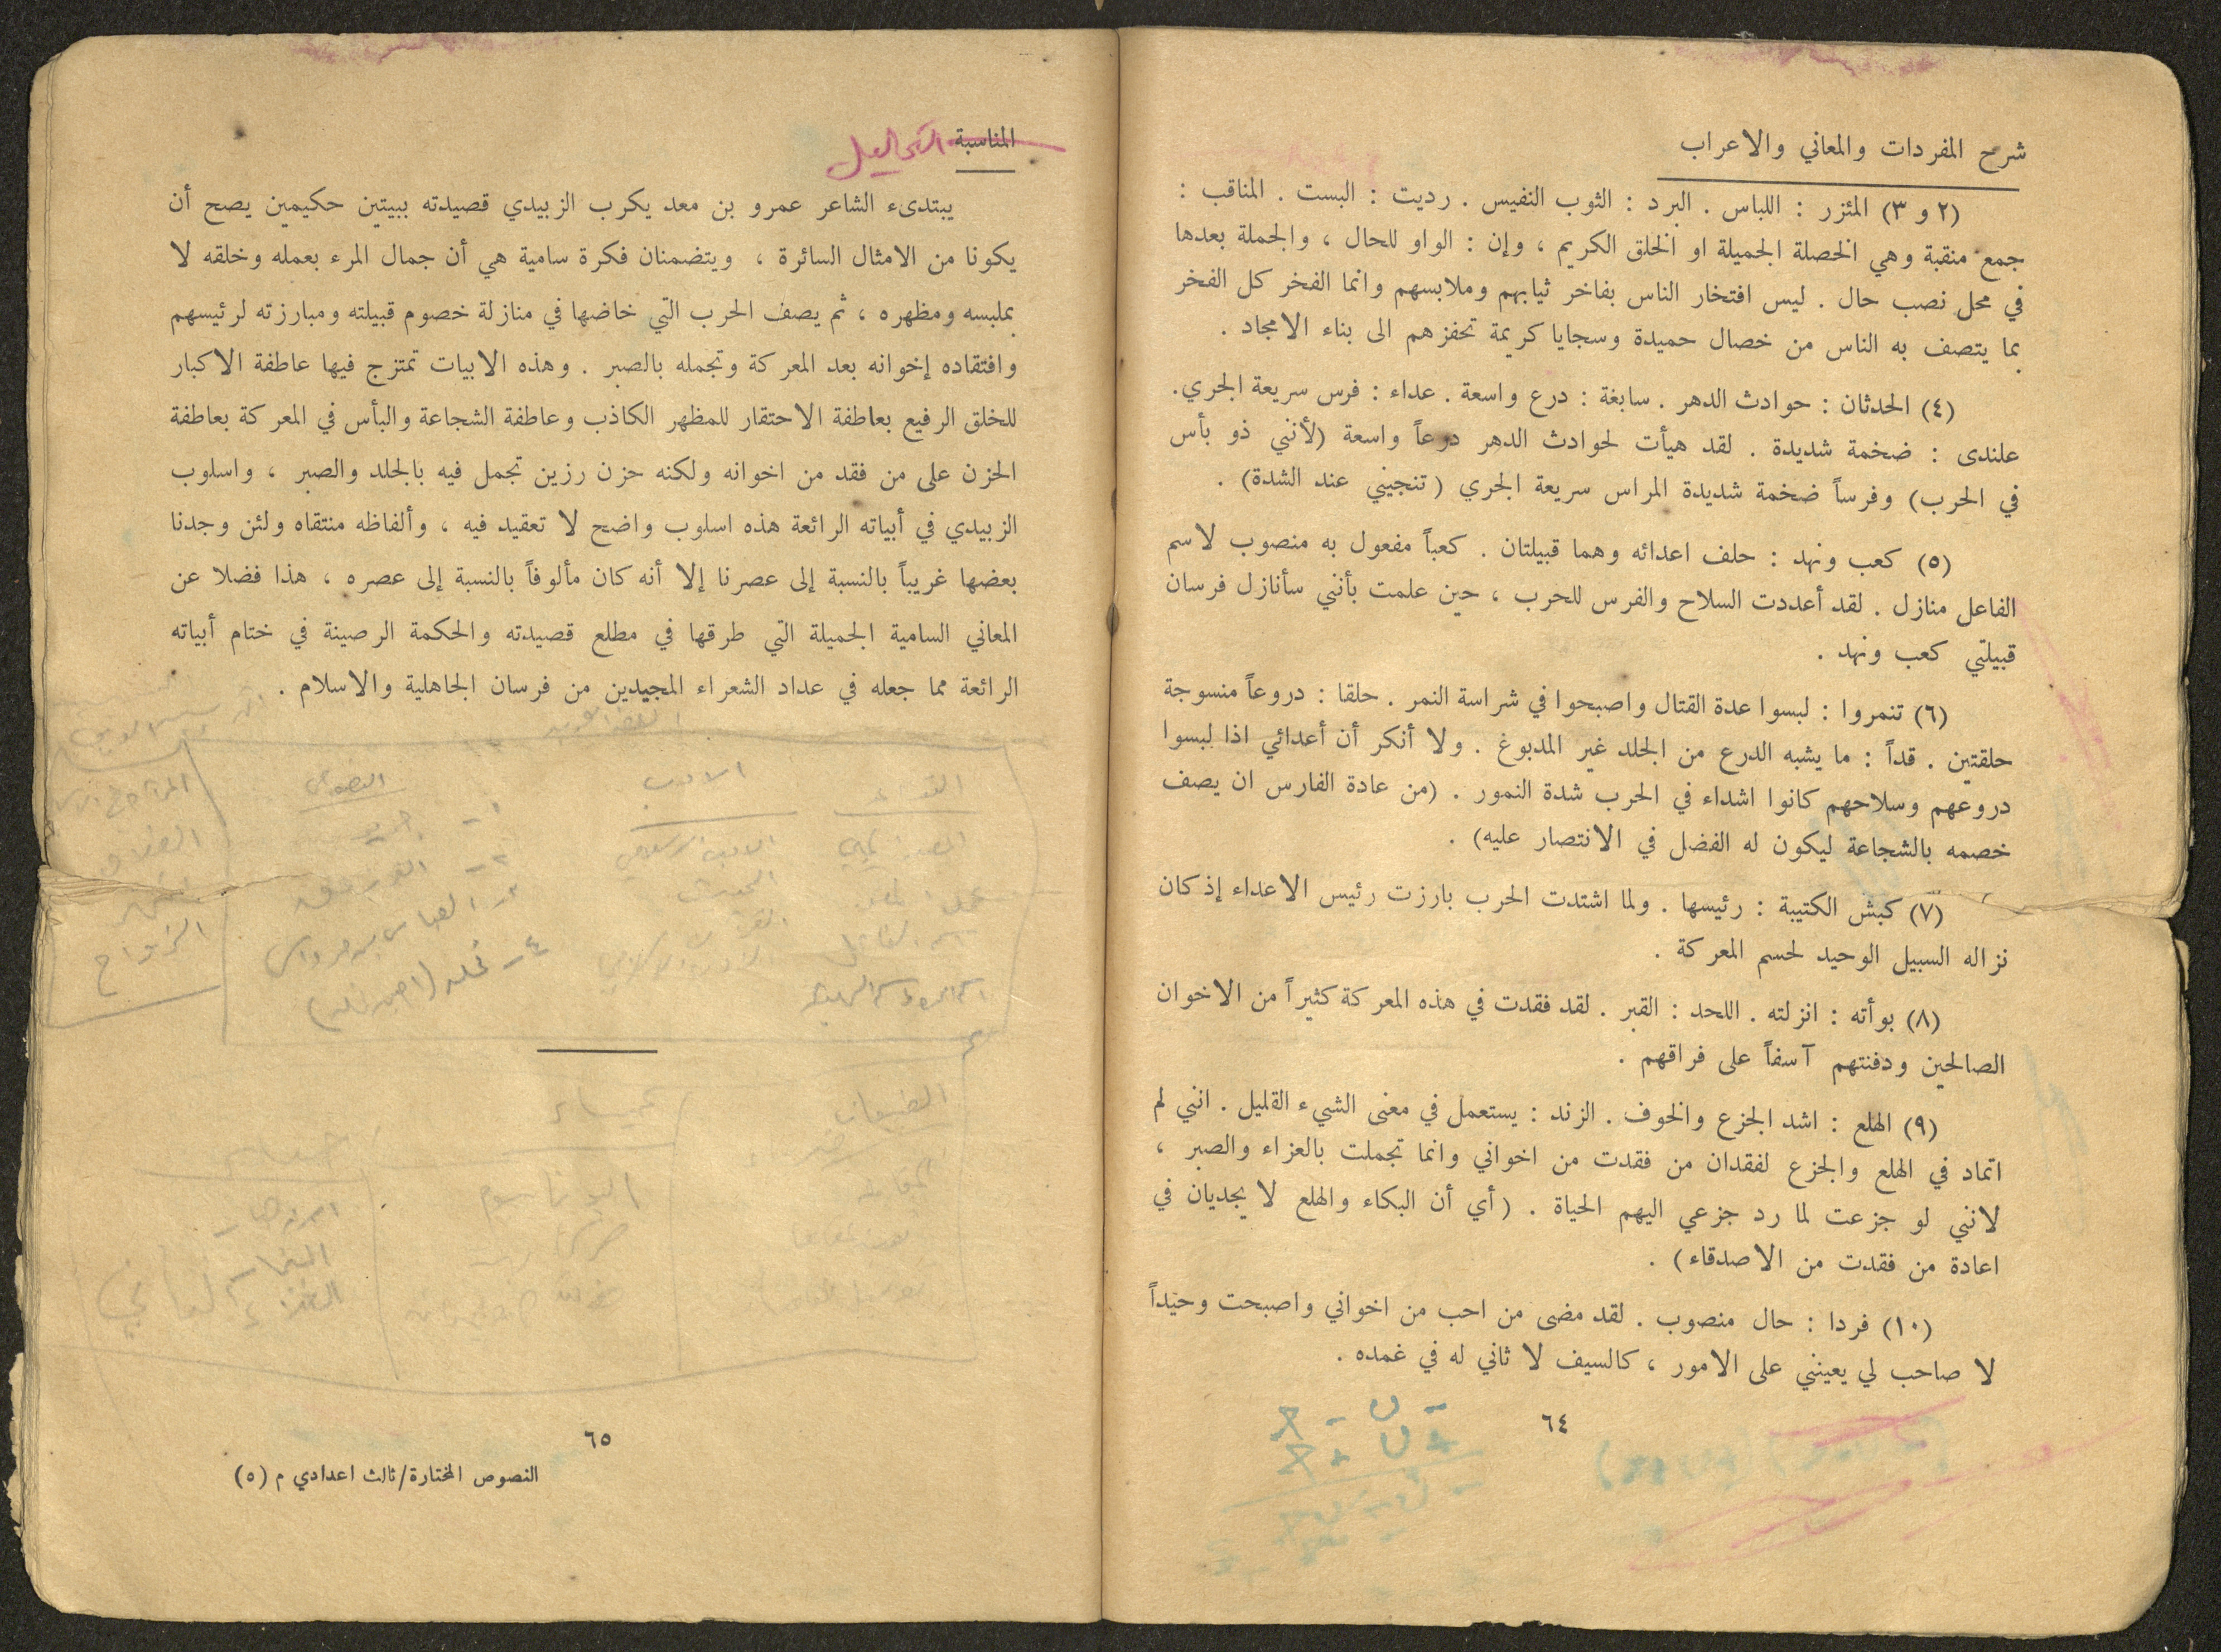 شرح المفردات والمعاني والاعراب
(٢ و ٣) المئزر : اللباس . البرد : الثوب النفيس . رديت : البست . المناقب :
جمع منقبة وهي الخصلة الجميلة او الخلق الكريم ، وإن : الواو للحال ، والجملة بعدها
في محل نصب حال . ليس افتخار الناس بفاخر ثيابهم وملابسهم وانما الفخر كل الفخر
بما يتصف به الناس من خصال حميدة وسجايا كريمة تحفزهم الى بناء الامجاد .
(٤) الحدثان : حوادث الدهر . سابغة : درع واسعة . عداء : فرس سريعة الجري .
علندى : ضخمة شديدة . لقد هيأت لحوادث الدهر درعاً واسعة (لأنني ذو بأس
في الحرب) وفرساً ضخمة شديدة المراس سريعة الجري (تنجيني عند الشدة) .
(٥) كعب ونهد : حلف اعدائه وهما قبيلتان . كعباً مفعول به منصوب لاسم
الفاعل منازل . لقد أعددت السلاح والفرس للحرب ، حين علمت بأنني سأنازل فرسان
قبيلتي كعب ونهد .
(٦) تنمروا : لبسوا عدة القتال واصبحوا في شراسة النمر . حلقا : دروعاً منسوجة
حلقتين . قداً : ما يشبه الدرع من الجلد غير المدبوغ . ولا أنكر أن أعدائي اذا لبسوا
دروعهم وسلاحهم كانوا اشداء في الحرب شدة النمور . (من عادة الفارس ان يصف
خصمه بالشجاعة ليكون له الفضل في الانتصار عليه) .
(٧) كبش الكتيبة : رئيسها . ولما اشتدت الحرب بارزت رئيس الاعداء إذ كان
نزاله السبيل الوحيد لحسم المعركة .
(٨) بوأته : انزلته . اللحد : القبر . لقد فقدت في هذه المعركة كثيراً من الاخوان
الصالحين ودفنتهم آسفاً على فراقهم .
(٩) الهلع : اشد الجزع والخوف . الزند : يستعمل في معنى الشيء القليل . انني لم
اتماد في الهلع والجزع لفقدان من فقدت من اخواني وانما تجملت بالعزاء والصبر ،
لانني لو جزعت لما رد جزعي اليهم الحياة . (أي أن البكاء والهلع لا يجديان في
اعادة من فقدت من الاصدقاء) .
(١٠) فردا : حال منصوب . لقد مضى من احب من اخواني واصبحت وحيداً
لا صاحب لي يعينني على الامور ، كالسيف لا ثاني له في غمده .
٦٤
المناسبة التحاليل
يبتدىء الشاعر عمرو بن معد يكرب الزبيدي قصيدته ببيتين حكيمين يصح أن
يكونا من الامثال السائرة ، ويتضمنان فكرة سامية هي أن جمال المرء بعمله وخلقه لا
بملبسه ومظهره ، ثم يصف الحرب التي خاضها في منازلة خصوم قبيلته ومبارزته لرئيسهم
وافتقاده إخوانه بعد المعركة وتجمله بالصبر . وهذه الابيات تمتزج فيها عاطفة الاكبار
للخلق الرفيع بعاطفة الاحتقار للمظهر الكاذب وعاطفة الشجاعة والبأس في المعركة بعاطفة
الحزن على من فقد من اخوانه ولكنه حزن رزين تجمل فيه بالجلد والصبر ، واسلوب
الزبيدي في أبياته الرائعة هذه اسلوب واضح لا تعقيد فيه ، وألفاظه منتقاه ولئن وجدنا
بعضها غريباً بالنسبة إلى عصرنا إلا أنه كان مألوفاً بالنسبة إلى عصره ، هذا فضلا عن
المعاني السامية الجميلة التي طرقها في مطلع قصيدته والحكمة الرصينة في ختام أبياته
الرائعة مما جعله في عداد الشعراء المجيدين من فرسان الجاهلية والاسلام .
الادب
النصوص
٢ - الفرزدق
٣ - العباس بن مرداس
الزواج
٦٥
النصوص المختارة/ثالث اعدادي م (٥)